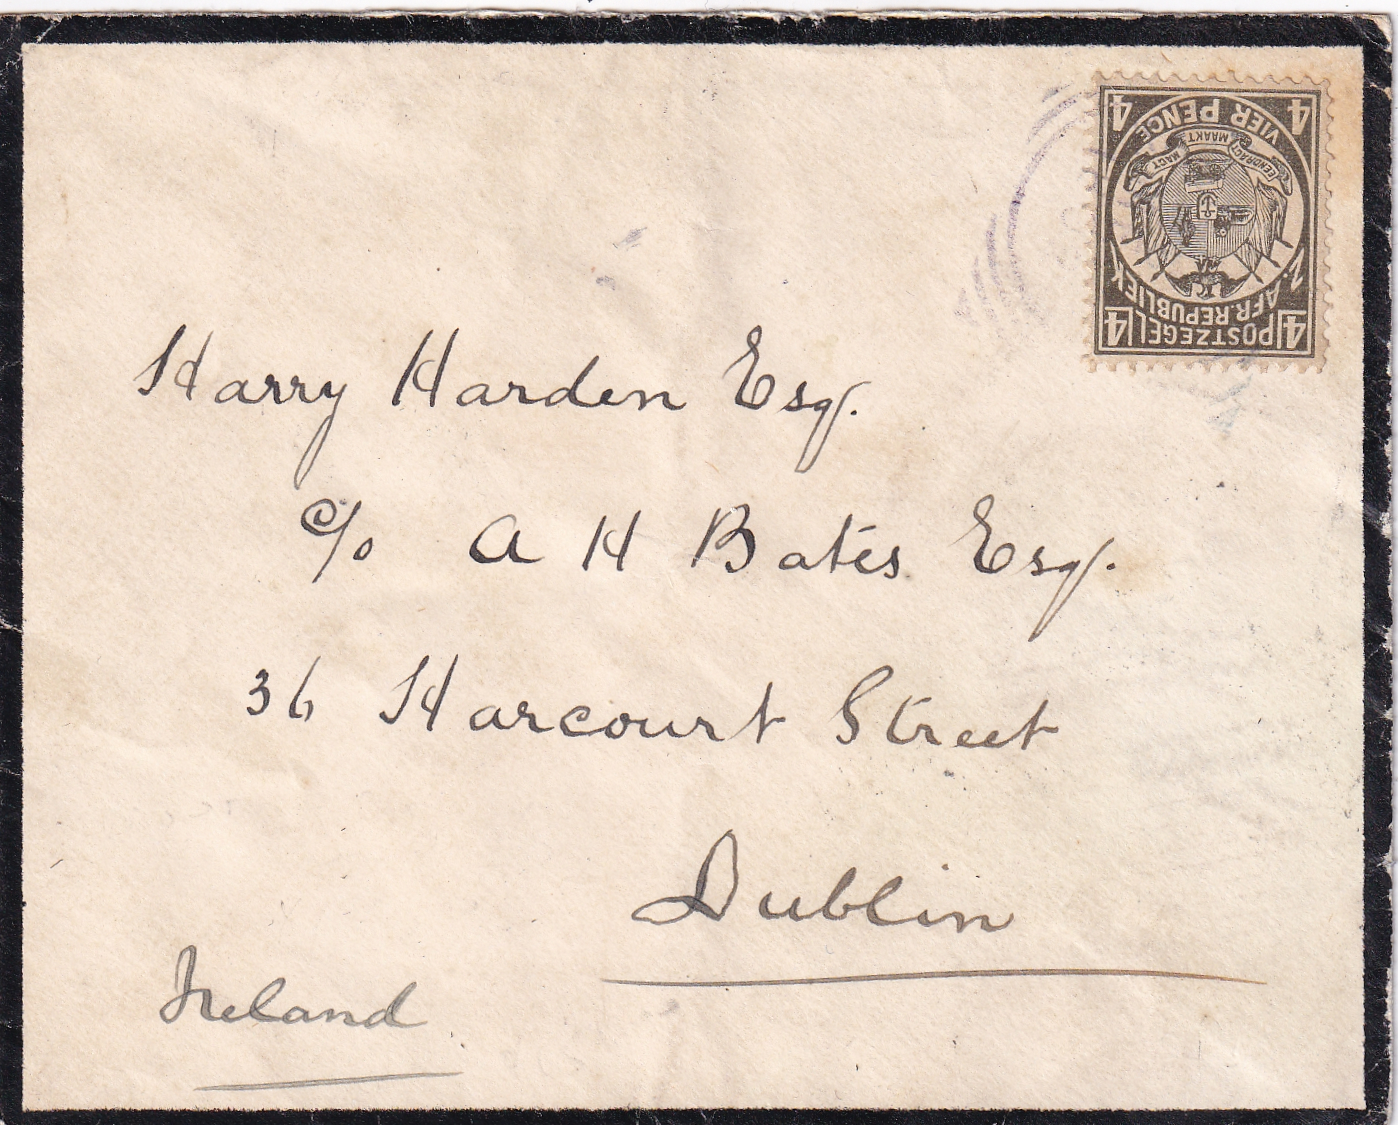 Harry Harden Esq.
c/o A H Bates Esq.
36 Harcourt Street
Dublin
Ireland
POSTZEGEL
Z. AFR. REPUBLIEK
EENDRAGT MAAKT MAGT
VIER PENCE
4 4
4 4